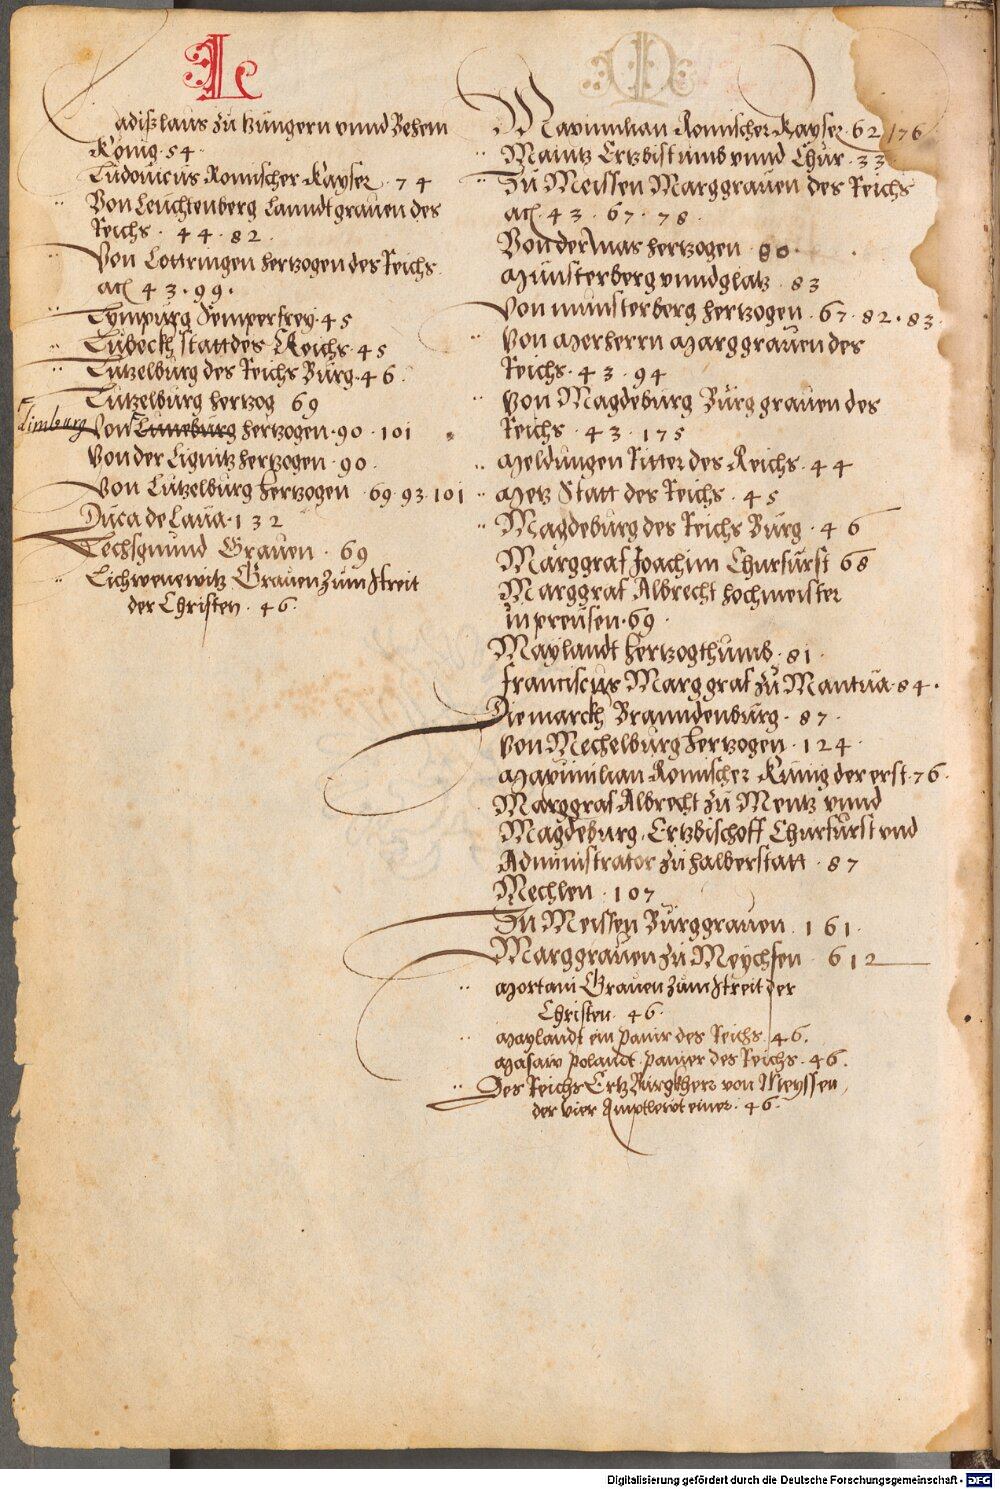 L
adißlaus zu Hungern vnnd Behem
König · 54 ·
Ludouicus Romischer Kayser · 74
Von Leuchtenberg Lanndtgrauen des
Reichs · 44 · 82 ·
Von Lottringen hertzogen des Reichs
43 · 99 ·
Lympurg Semperfrey · 45
Lübeckh statt des Reichs · 45
Lützelburg des Reichs Burg · 46 ·
Lützelburg hertzog 69
Limburg Von Lüneburg hertzogen · 90 · 101
Von der Lignitz hertzogen · 90 ·
Von Lützelburg hertzogen · 69 · 93 · 101
Duca de Laua · 132
Lechsgmund Grauen · 69
Lichwenewitz Grauen zum streit
der Christen · 46 ·
M
Maximilian Romischer Kayser · 62 · 176
Maintz Ertzbistumb vnnd Chur · 33
Zu Meissen Marggrauen des Reichs
43 · 67 · 78 ·
Von der Mas hertzogen · 80 ·
Münsterberg vnnd glatz · 83
Von münsterberg hertzogen · 67 · 82 · 83
Von Merherrn Marggrauen des
Reichs · 43 · 94
Von Magdeburg Burggrauen des
Reichs · 43 · 175
Meldungen Ritter des Reichs · 44
Metz Statt des Reichs · 45
Magdeburg des Reichs Burg · 46
Marggraf Joachim Churfürst 68
Marggraf Albrecht hochmeister
in preusen · 69 ·
Maylandt hertzogthumb · 81 ·
franciscus Marggraf zu Mantua · 84 ·
Die marckh Branndenburg · 87 ·
Von Mechelburg hertzogen · 124 ·
Maximilian Romischer Künig der erst · 76 ·
Marggraf Albrecht zu Mentz vnnd
Magdeburg, Ertzbischoff Churfürst vnd
Administrator zu halberstatt · 87
Mechlen · 107
Zu Meissen Burggrauen · 161 ·
Marggrauen zu Meychsen · 612
Mortani Grauen zum streit der
Christen · 46 ·
Maylandt ein panir des Reichs · 46 ·
Masaw polandt panier des Reichs · 46 ·
Des Reichs Ertz Burgkherr von Meyssen,
der vier Amptlewt einer · 46 ·
Digitalisierung gefördert durch die Deutsche Forschungsgemeinschaft - DFG